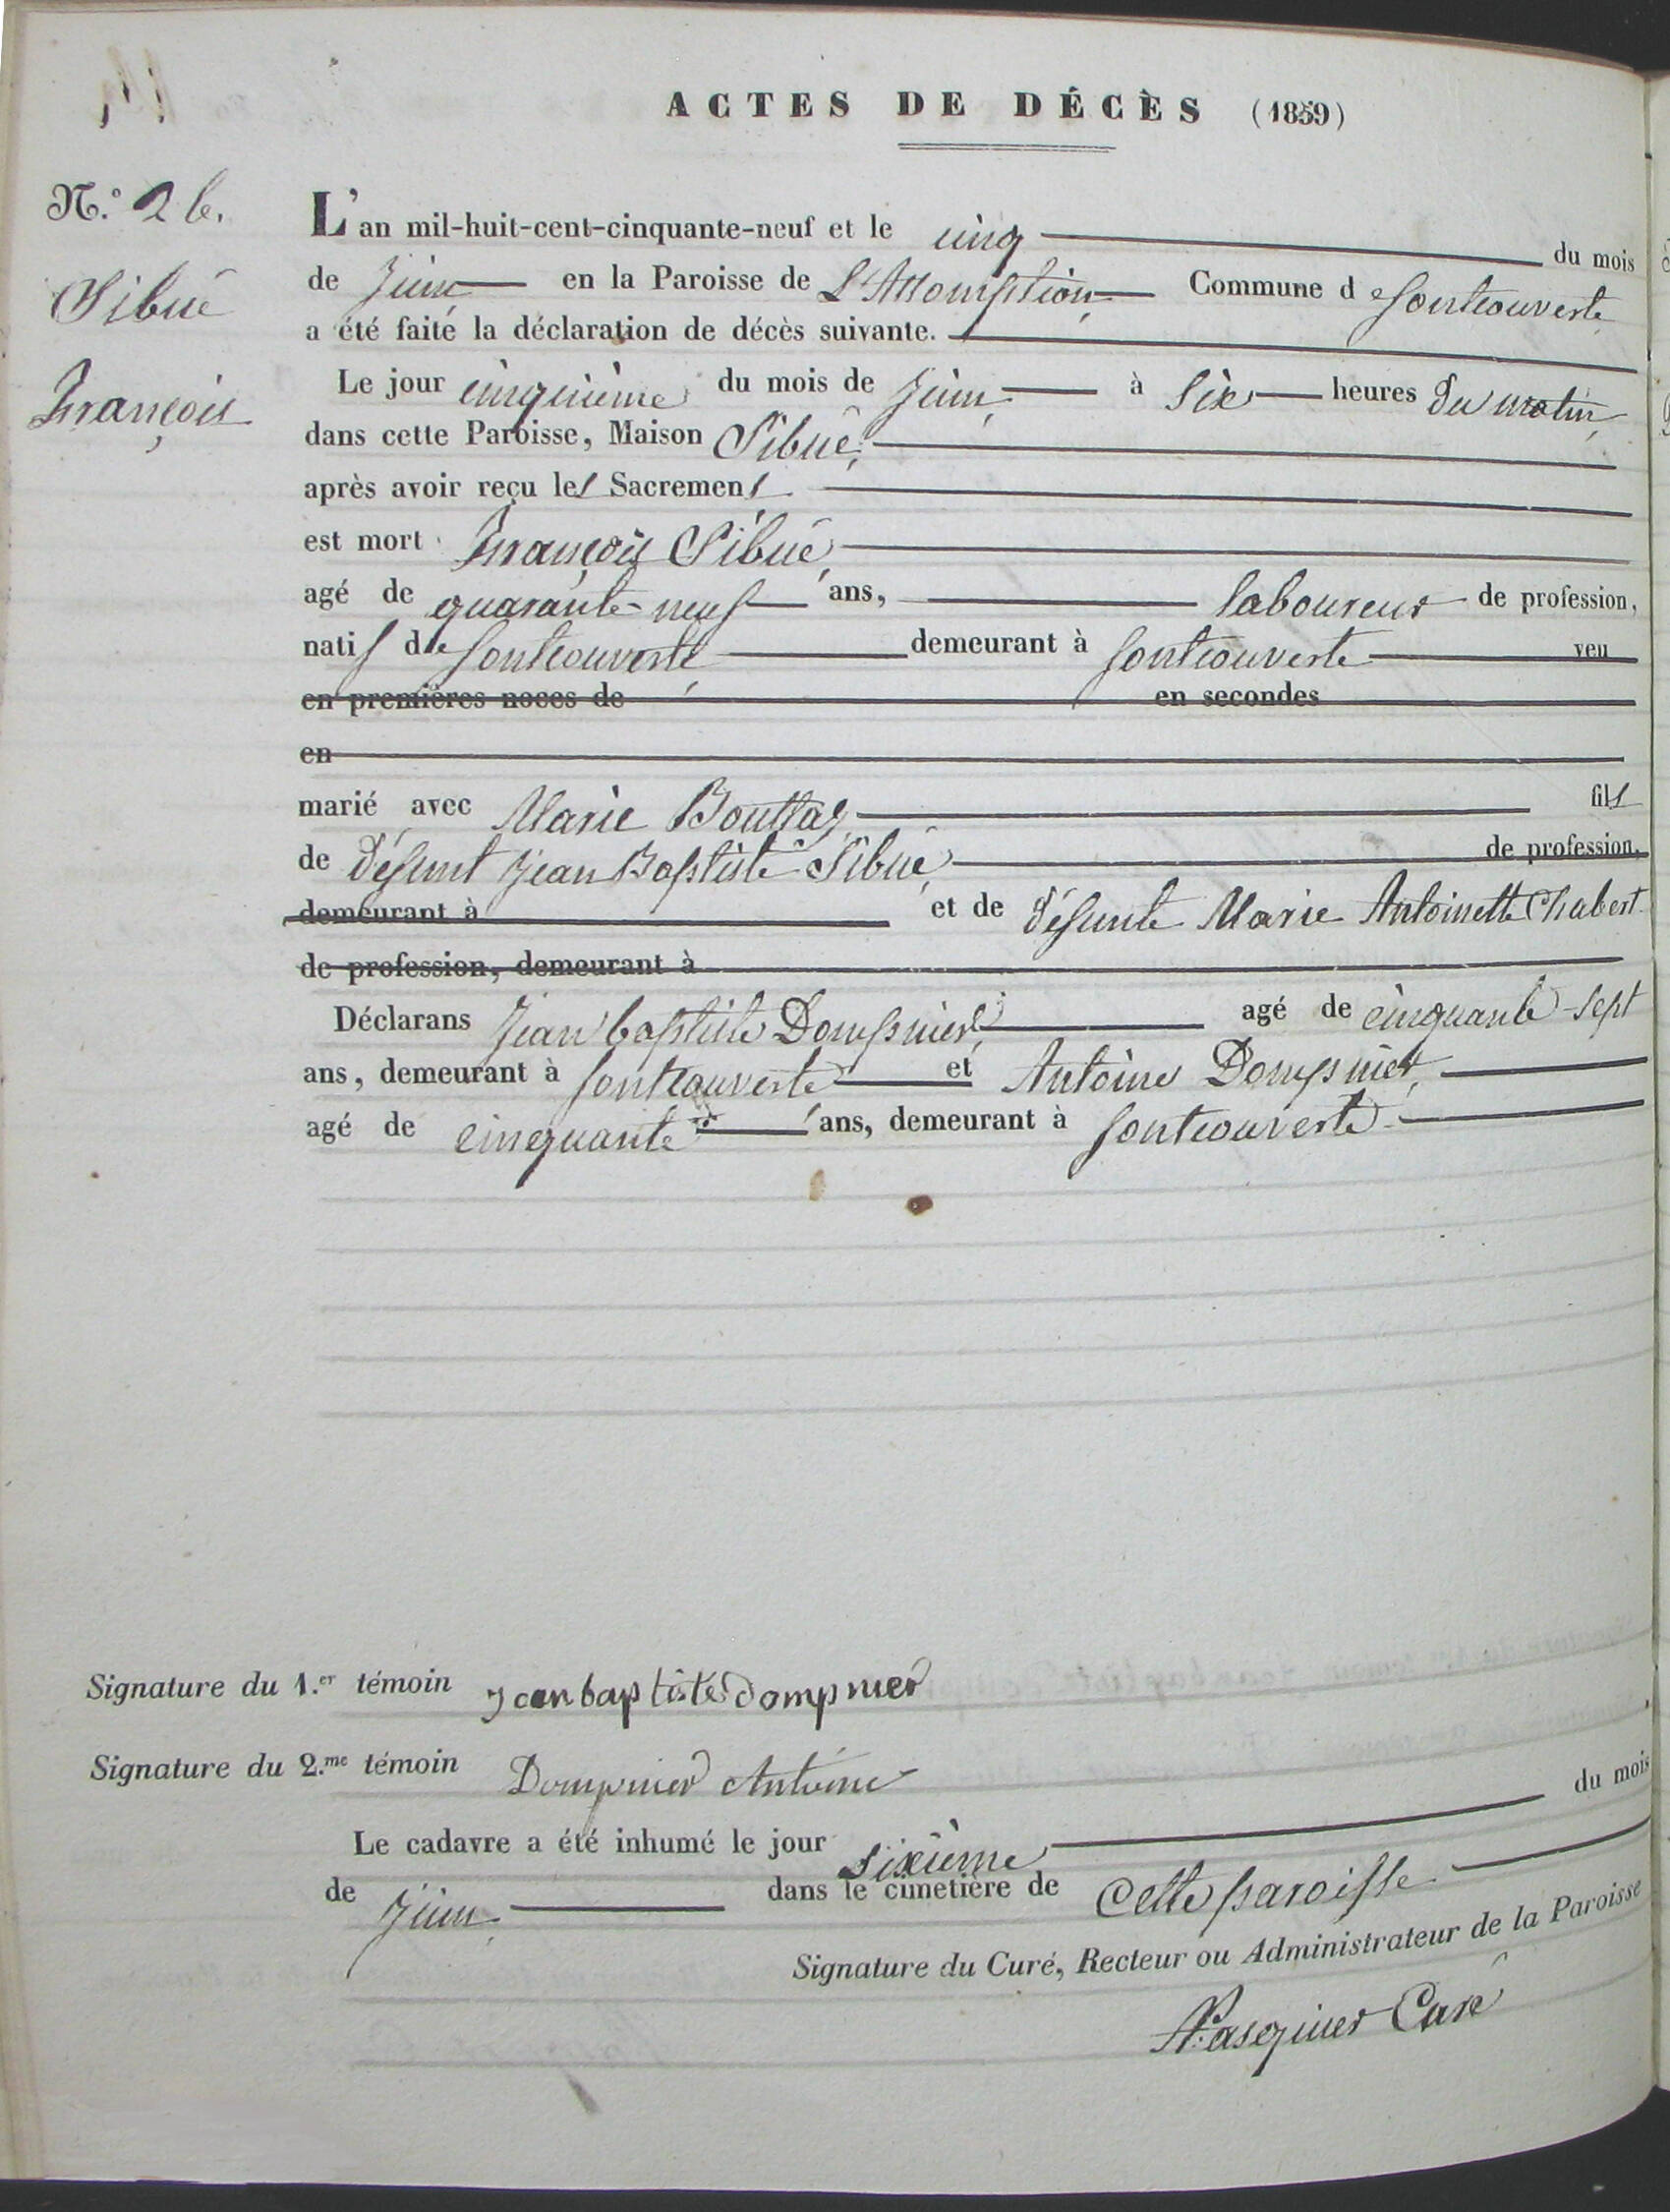 ACTES DE DÉCÈS (1859)
N.º 26.
Sibué
François
L'an mil-huit-cent-cinquante-neuf et le cinq du mois
de Juin en la Paroisse de L'Assomption Commune de fontcouverte
a été faite la déclaration de décès suivante.
Le jour cinquième du mois de Juin à Six heures du matin
dans cette Paroisse, Maison Sibué
après avoir reçu les Sacremens
est mort François Sibué
agé de quarante-neuf ans, laboureur de profession,
natif de fontcouverte demeurant à fontcouverte veu
en premières noces de en secondes
en
marié avec Marie Bouttaz fils
de défunt Jean Baptiste Sibué de profession,
demeurant à et de défunte Marie Antoinette Chabert
de profession, demeurant à
Déclarans Jean baptiste Dompnier, agé de cinquante-sept
ans, demeurant à fontcouverte et Antoine Dompnier,
agé de cinquante ans, demeurant à fontcouverte
Signature du 1.er témoin jeanbaptiste dompnier
Signature du 2.me témoin Dompnier Antoine
Le cadavre a été inhumé le jour sixième du mois
de Juin dans le cimetière de cette paroisse
Signature du Curé, Recteur ou Administrateur de la Paroisse
Pasquier Curé